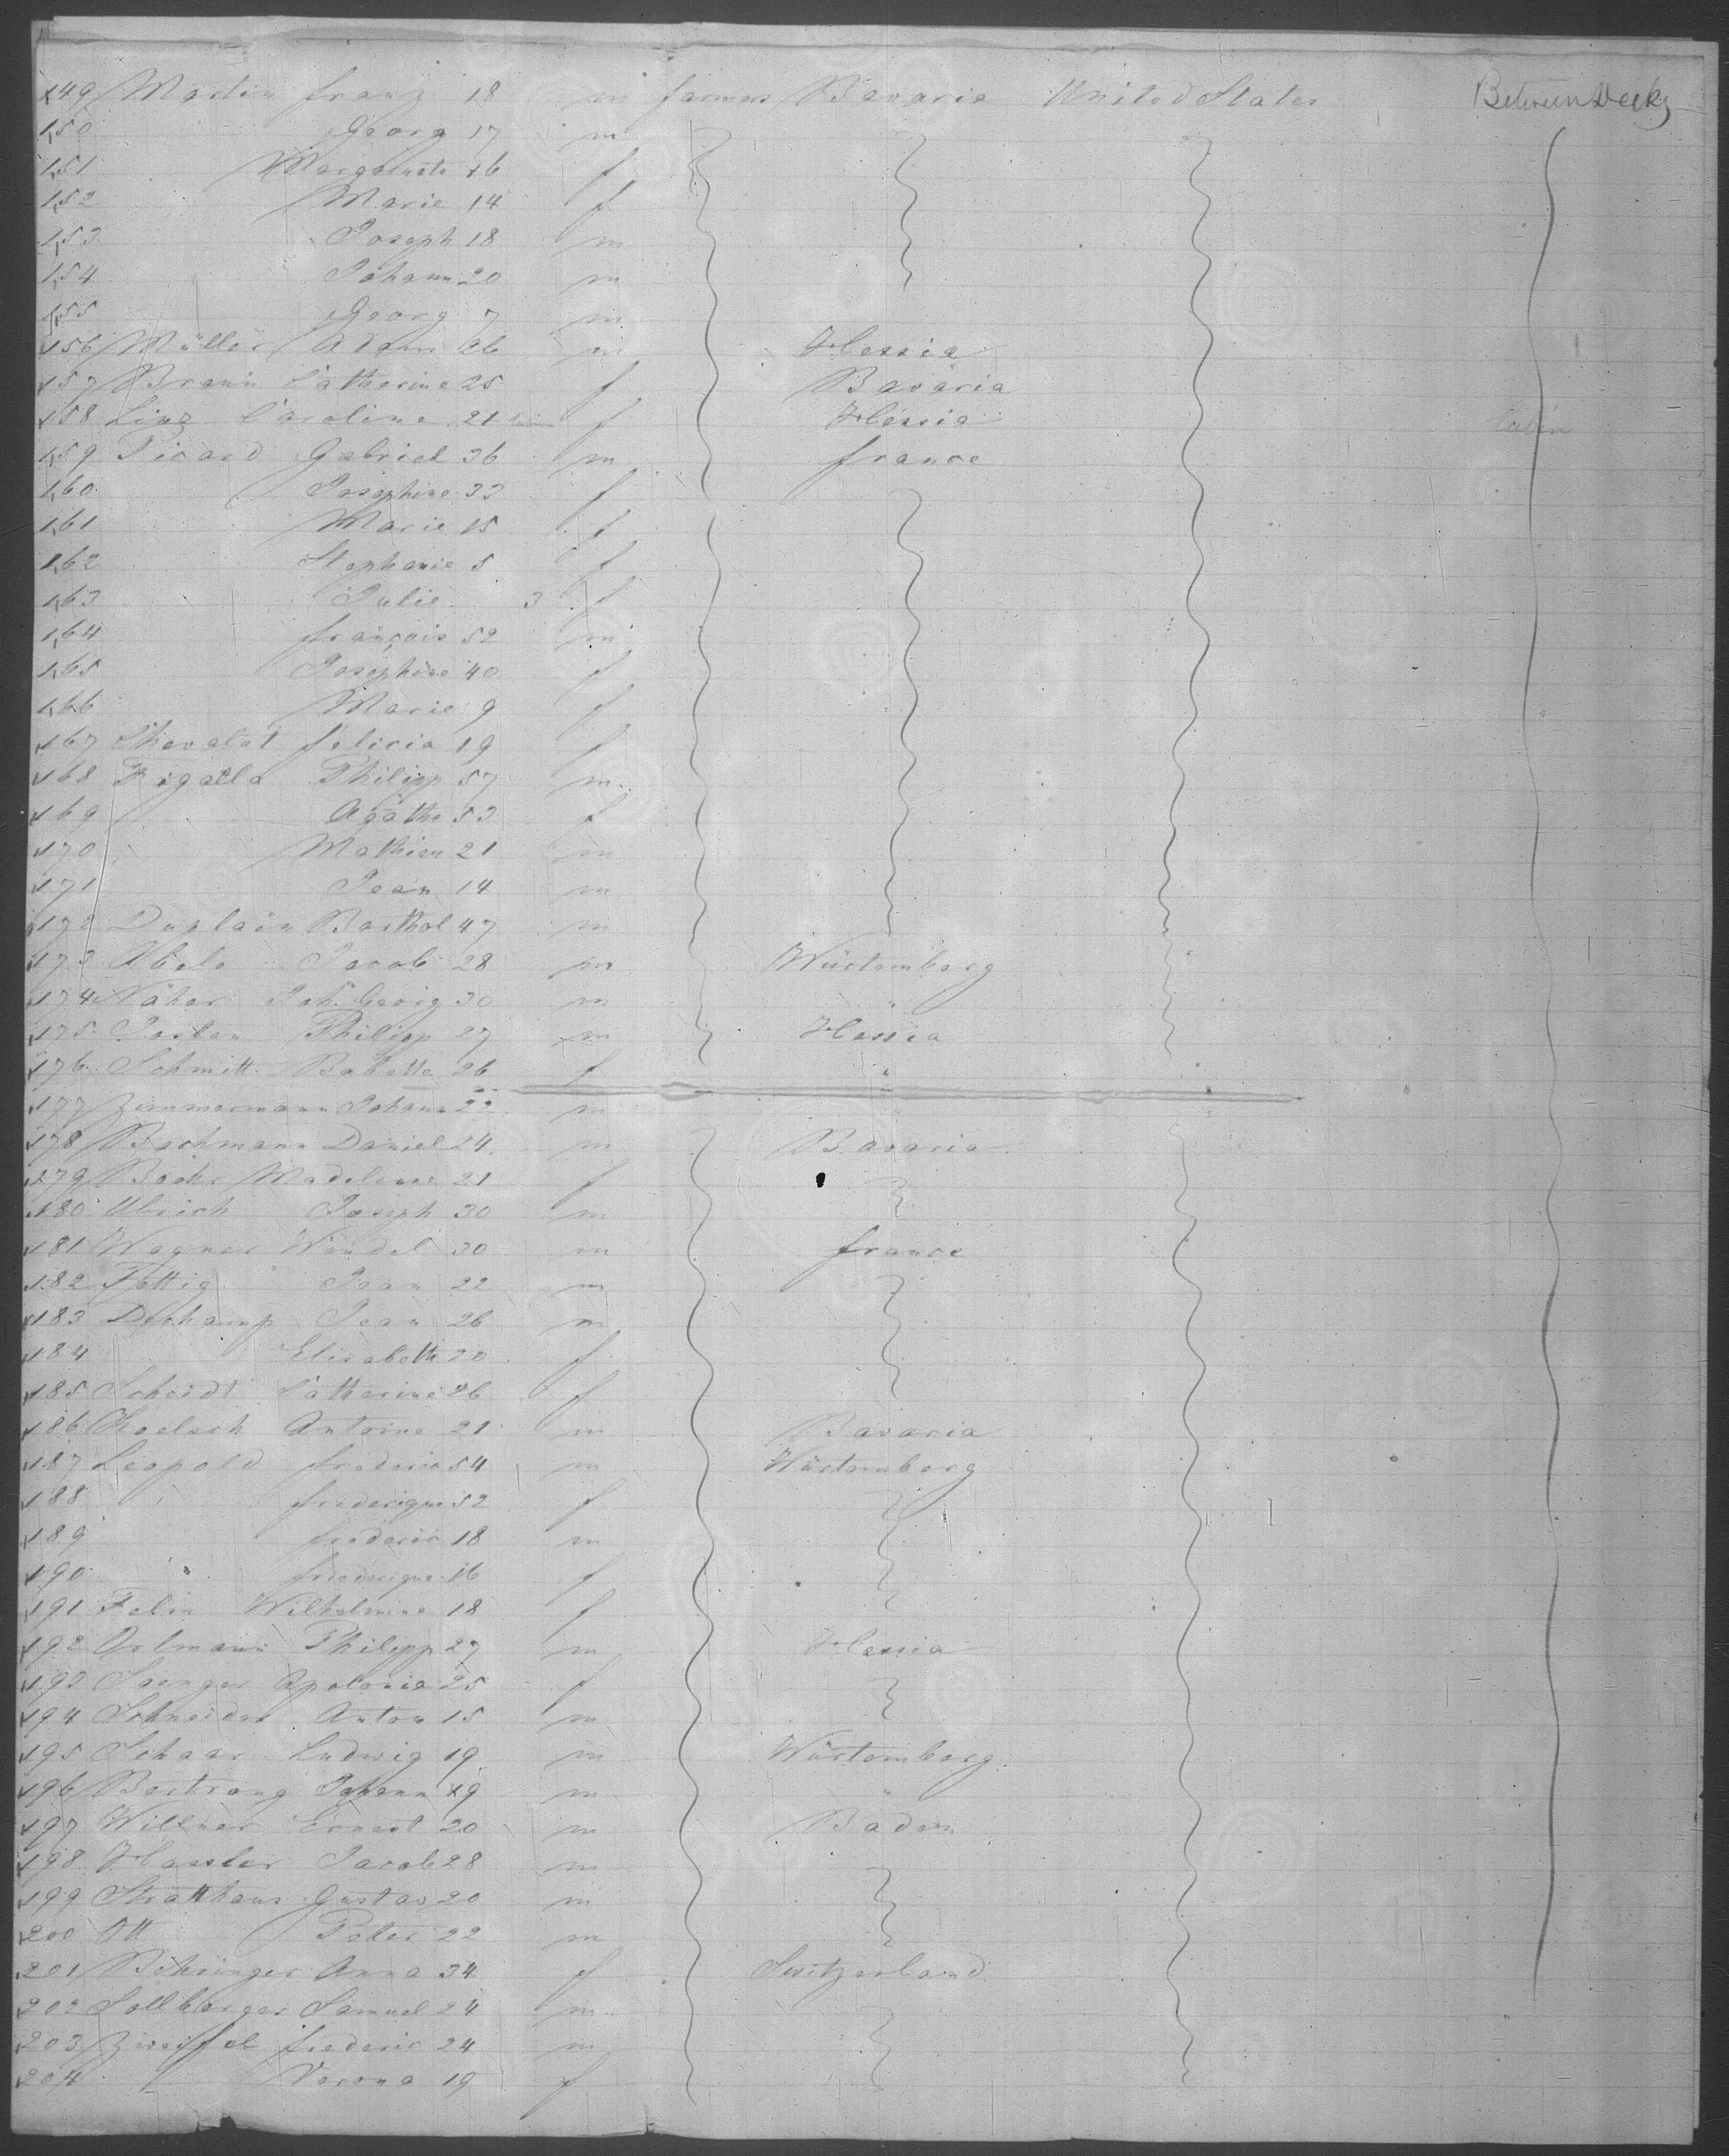 149 Martin franz 18 m farmers Bavaria United States Between Decks
150 Georg 17 m
151 Margaretha 16 f
152 Marie 14 f
153 Joseph 18 m
154 Johann 20 m
155 Georg 7 m
156 Müller Adam 26 m Hessia
157 Braun Catherine 25 f Bavaria
158 Linz Caroline 21 f Hessia Cabin
159 Picard Gabriel 36 m france
160 Josephine 33 f
161 Marie 15 f
162 Stephanie 5 f
163 Julie 3 f
164 français 52 m
165 Josephine 40 f
166 Marie 9 f
167 Chevalet felicia 19 f
168 Philipp 57 m
169 Agathe 53 f
170 Mathieu 21 m
171 Jean 14 m
172 Duplain Barthol 47 m
173 Abele Jacob 28 m Würtemberg
174 Näher Joh. Georg 30 m "
175 Philipp 27 m Hessia
176 Schmitt Babette 26 f "
177 Zimmermann Johann 22 m
178 Bachmann Daniel 24 m Bavaria
179 Madeleine 21 f
180 Ulrich Joseph 30 m
181 Wagner Wendel 30 m france
182 Fettig Jean 22 m
183 Dechamp Jean 26 m
184 Elisabeth 20 f
185 Scheidt Catherine 26 f
186 Antoine 21 m Bavaria
187 Leopold frederic 54 m Würtemberg
188 frederique 52 f
189 frederic 18 m
190 frederique 16 f
191 Wilhelmine 18 f
192 Philipp 27 m Hessia
193 Saenger Apolonia 25 f
194 Schneider Anton 15 m
195 Schaar Ludwig 19 m Würtemberg
196 Bertrang Johann 19 m "
197 Willner Ernest 20 m Baden
198 Hassler Jacob 28 m
199 Stratthaus Gustav 20 m
200 Ott Peter 22 m
201 Behringer Anna 34 f Switzerland
202 Sollberger Samuel 24 m
203 Zweiffel frederic 24 m
204 Verena 19 f